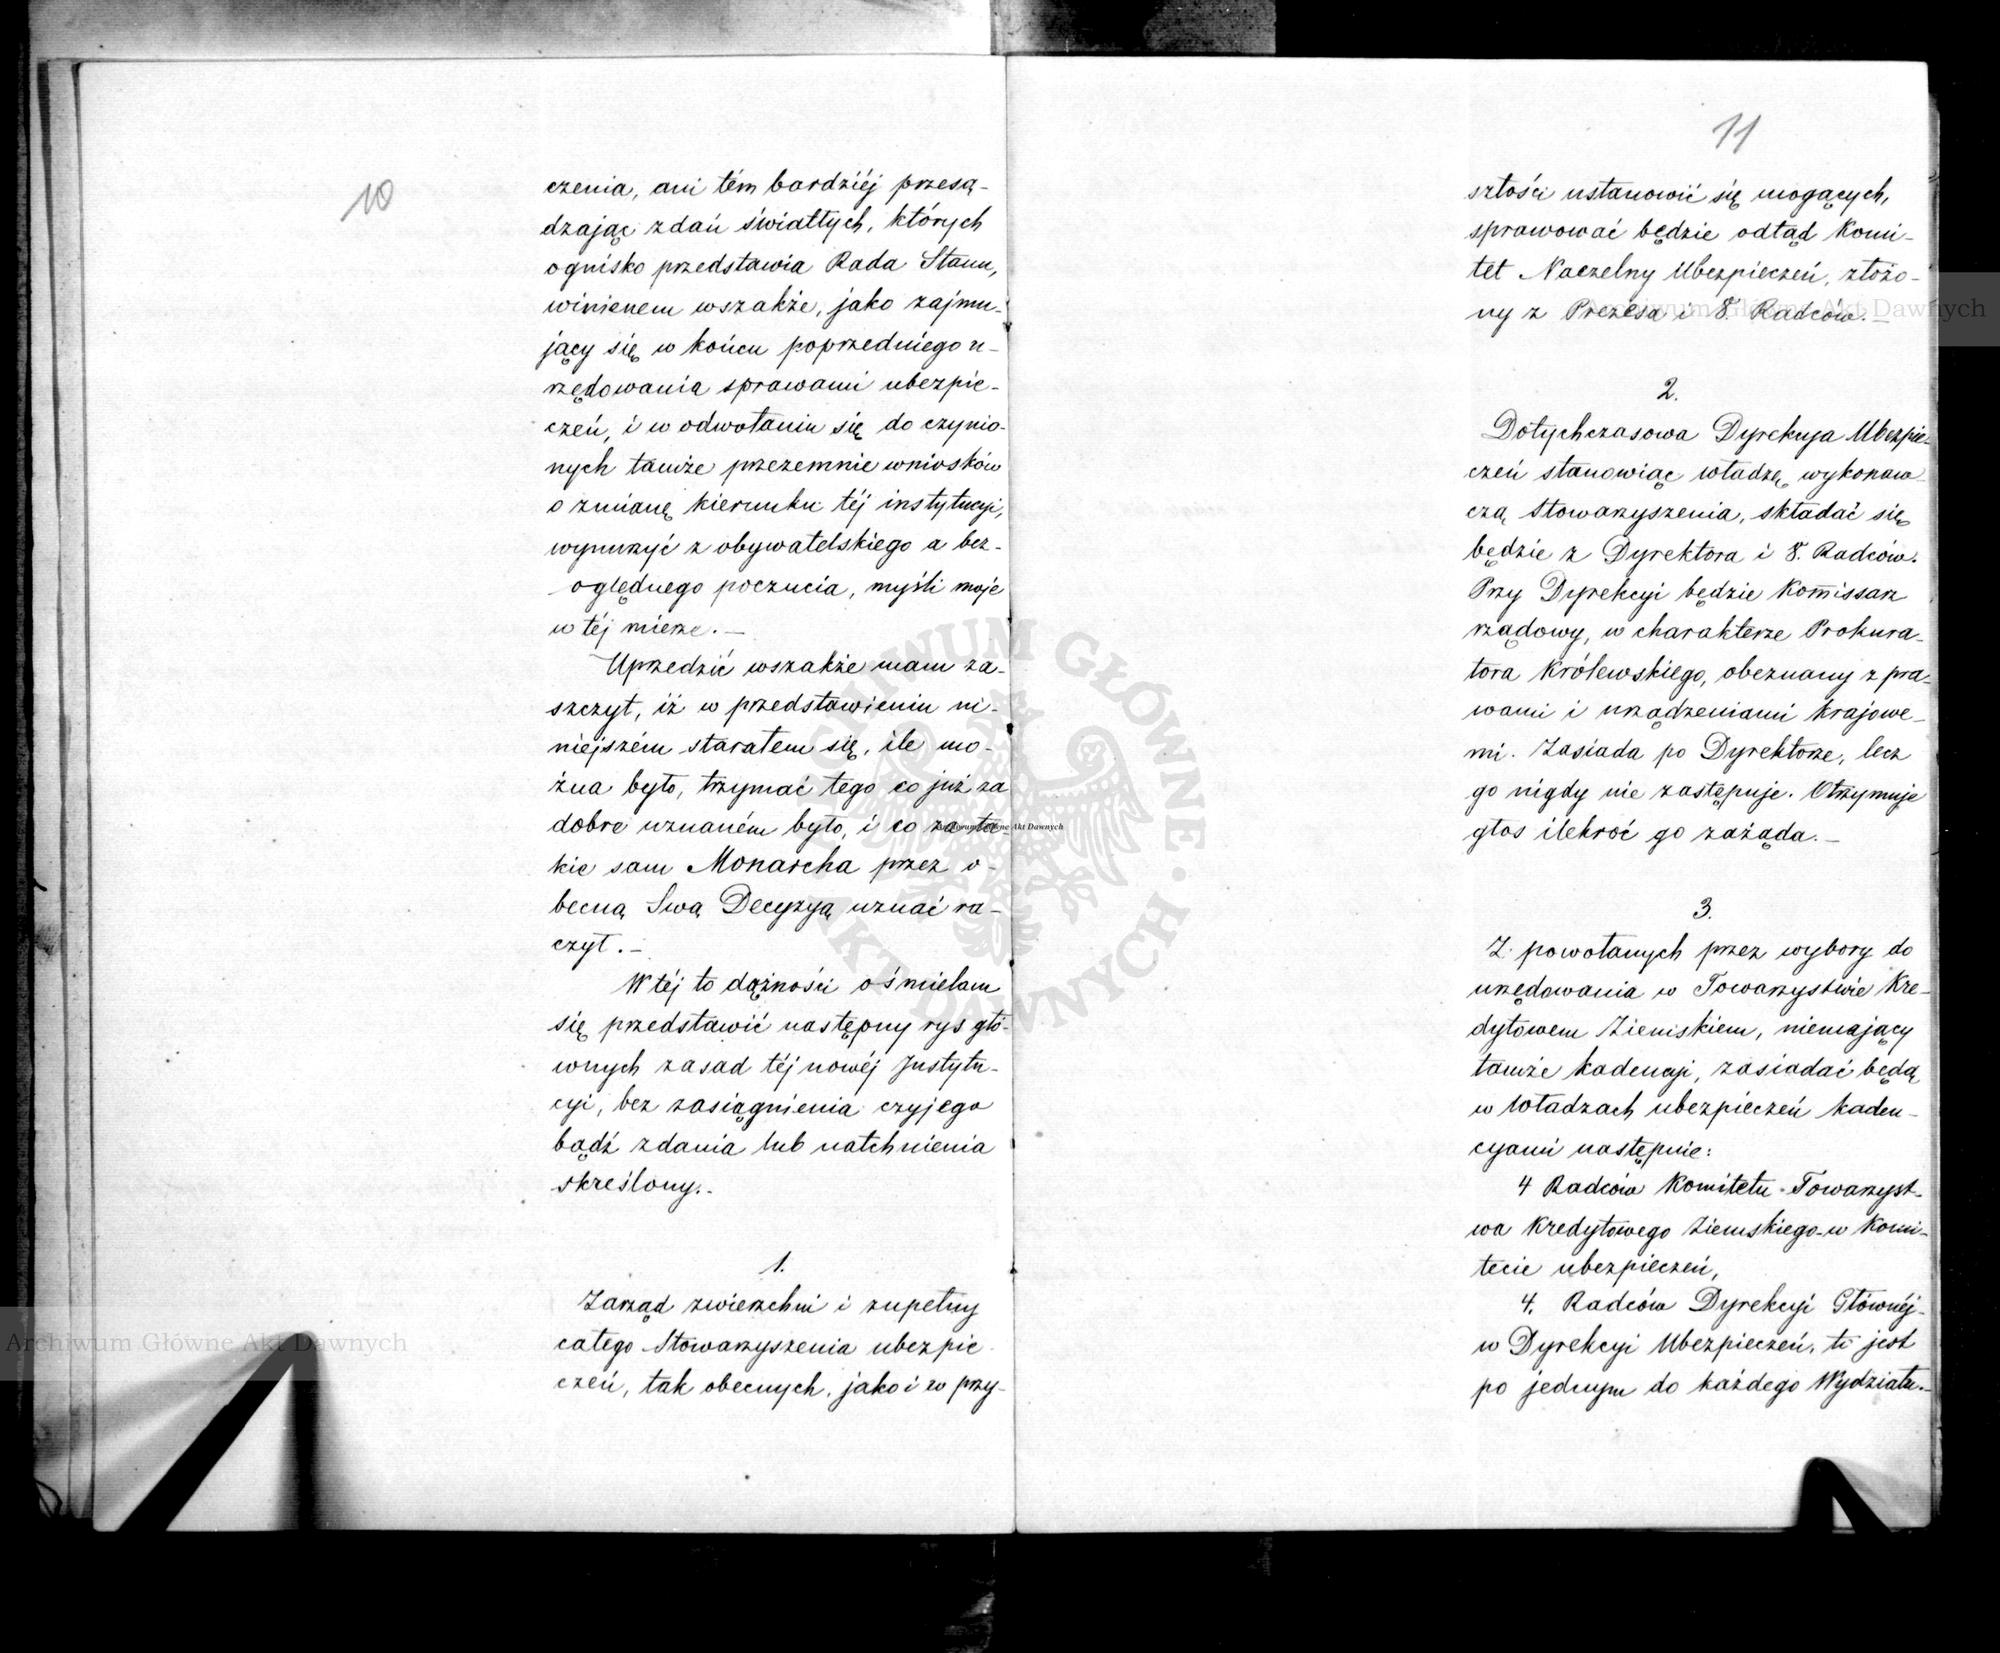 10
czenia, ani tém bardziéj przesą-
dzając zdań światłych, których
ognisko przedstawia Rada Stanu,
winienem wszakże, jako zajmu-
jący się w końcu poprzedniego u-
rzędowania sprawami ubezpie-
czeń, i w odwołaniu się do czynio-
nych tamże przezemnie wniosków
o zmianę kierunku téj instytucyi,
wynurzyć z obywatelskiego a bez-
oględnego poczucia, myśli moje
w téj mierze. —
Uprzedzić wszakże mam za-
szczyt, iż w przedstawieniu ni-
niejszém starałem się, ile mo-
żna było, trzymać tego co już za
dobre uznaném było, i co za ta-
kie sam Monarcha przez o-
becną Swą Decyzyą uznać ra-
czył. —
W téj to dążności ośmielam
się przedstawić następny rys głó-
wnych zasad téj nowéj Instytu-
cyi, bez zasiągnienia czyjego
bądź zdania lub natchnienia
skreślony. -
1.
Zarząd zwierzchni i zupełny
całego Stowarzyszenia ubezpie-
czeń, tak obecnych, jako i w przy-
11
szłości ustanowić się mogących,
sprawować będzie odtąd Komi-
tet Naczelny Ubezpieczeń, złożo-
ny z Prezesa i 8. Radców. —
2.
Dotychczasowa Dyrekcya Ubezpie-
czeń stanowiąc władzę wykonaw-
czą Stowarzyszenia, składać się
będzie z Dyrektora i 8. Radców.
Przy Dyrekcyi będzie Kom̄issarz
rządowy, w charakterze Prokura-
tora Królewskiego, obeznany z pra-
wami i urządzeniami krajowe-
mi. Zasiada po Dyrektorze, lecz
go nigdy nie zastępuje. Otrzymuje
głos ilekroć go zażąda. —
3.
Z powołanych przez wybory do
urzędowania w Towarzystwie Kre-
dytowem Ziemskiem, niemający
tamże kadencyi, zasiadać będą
w władzach ubezpieczeń kaden-
cyami następnie:
4 Radców Komitetu Towarzyst-
wa Kredytowego Ziemskiego w Komi-
tecie ubezpieczeń,
4. Radców Dyrekcyi Głównéj-
w Dyrekcyi Ubezpieczeń, to jest
po jednym do każdego Wydziału. —
Archiwum Główne Akt Dawnych
Archiwum Główne Akt Dawnych
Archiwum Główne Akt Dawnych
ARCHIWUM GŁÓWNE AKT DAWNYCH